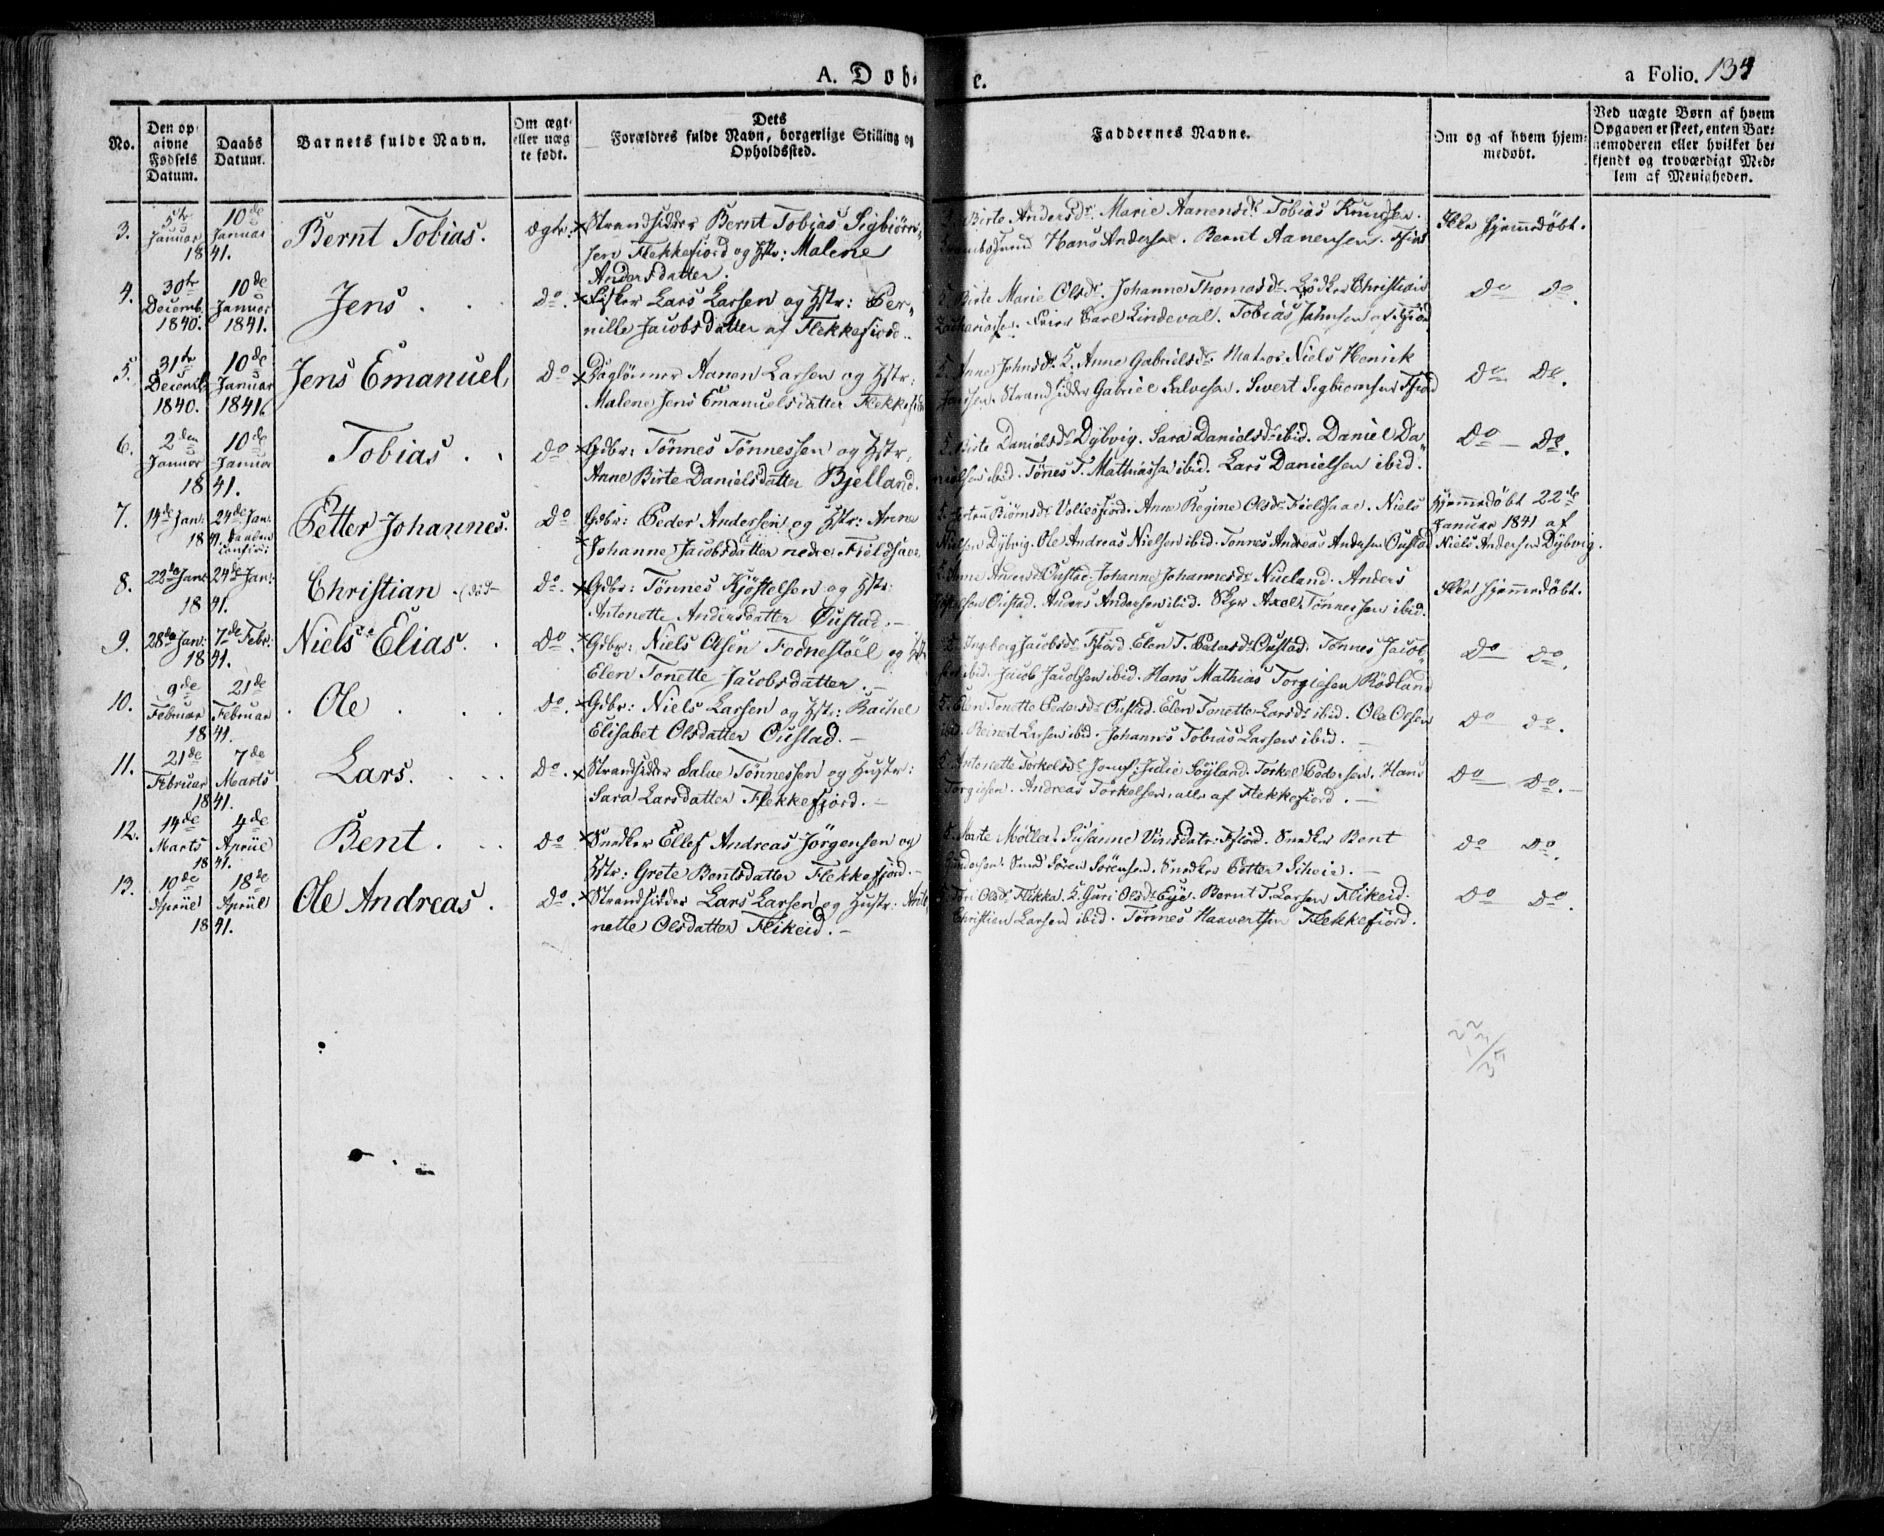 A. Døb-
e.
a Folio. 134
No.
Den op-
givne
Fødsels
Datum.
Daabs
Datum.
Barnets fulde Navn.
Om ægte
eller uæg-
te født.
Dets
Forældres fulde Navn, borgerlige Stilling og
Opholdssted.
Faddernes Navne.
Om og af hvem hjem-
medøbt.
Ved uægte Børn af hvem
Opgaven er skeet, enten Bar-
nemoderen eller hvilket be-
kjendt og troværdigt Med-
lem af Menigheden.
3. 5te Januar 1841. 10de Januar
Bernt Tobias. ægte.
Strandsidder Bernt Tobias Sigbiørn-
sen Flekkefiord og Hstr: Malene
Andersdatter.
Birte Andersdr. Marie Aanensdr. Tobias Knudsen.
Hans Andersen. Bernt Aanensen. Ffiord
Ikke hjemmedøbt.
4. 30te Decemb. 1840. 10de Januar 1841.
Jens. Do.
Fisker Lars Larsen og Hstr: Per-
nille Jacobsdatter af Flekkefiord.
Birte Marie Olsdr. Johanne Thomasdr. Christian
Zachariasen. Carl Lindeval. Tobias Johnsen af Ffiord
Do Do.
5. 31te Decemb. 1840. 10de Januar 1841.
Jens Emanuel, Do
Daglønner Aanen Larsen og Hstr:
Malene Jens Emanuelsdatter Flekkefiord
Anne Johnsdr. Anne Gabrielsdr. Matros Niels Henrik
Jansen. Strandsidder Gabriel Salvesen. Sivert Segbiørnsen Ffiord
Do Do.
6. 2den Januar 10de Januar 1841.
Tobias. Do
Gdbr: Tønnes Tønnessen og Hstr.
Anne Birte Danielsdatter Bjelland.
Birte Danielsdr Dybvig. Sara Danielsdr ibid. Daniel Da-
nielsen ibid. Tønes T. Mathiassen ibid. Lars Danielsen ibid.
Do Do.
7. 14de Jan: 24de Jan: 1841.
Petter Johannes. Do
Gdbr: Peder Andersen og Hstr: Anne
Johanne Jacobsdatter nedre Fieldsaae.
Biørnsdr. Anne Regine Olsdr Fieldsaae. Niels
Nielsen Dybvig. Ole Andreas Nielsen ibid. Tønnes Andreas Andersen Oustad
Hjemmedøbt 22de
Januar 1841 af
Niels Andersen Dybvig.
8. 22de Jan: 24de Jan: 1841.
Christian (død Do.
Gdbr: Tønnes Kjøstelsen og Hstr:
Antonette Andersdatter Oustad.
Anne Andersdr Oustad. Johanne Johannesdr Nueland. Anders
Oustad. Anders Andersen ibid. Axel Tønnessen ibid.
Ikke hjemmedøbt.
9. 28de Jan: 7de Febr: 1841.
Niels Elias. Do.
Gdbr: Niels Olsen Fodnestøel og Hstr
Elen Tonette Jacobsdatter.
Ingeborg Jacobsdr. Ffiord Elen T. Pedersdr Oustad. Tønnes Jacob-
sen ibid. Jacob Jacobsen ibid. Hans Mathias Torgiesen Rødland
Do Do.
10. 9de Februar 21de Februar 1841.
Ole. Do.
Gdbr: Niels Larsen og Hstr: Rachel
Elisabet Olsdatter Oustad.
Elen Tonette Pedersdr Oustad. Elen Tonette Larsdr ibid. Ole Olsen
ibid. Reinert Larsen ibid. Johannes Tobias Larsen ibid.
Do Do.
11. 21de Februar 7de Marts 1841.
Lars. Do.
Strandsidder Salve Tønnessen og Hustr:
Sara Larsdatter Flekkefjord.
Antonette Torkelsdr. Jomf: Julie Søyland. Torkel Pedersen. Hans
Torgiesen. Andreas Torkelsen, alle af Flekkefiord.
Do Do.
12. 14de Marts 4de April 1841.
Bent. Do
Snedker Ellef Andreas Jørgensen og
Hstr: Grete Bentsdatter Flekkefjord.
Marte Møller. Susanne Ffiord. Snedker Bent
Gundersen. Søren Sørensen. Snedker Petter Scheie.
Do Do.
13. 10de April 18de April 1841.
Ole Andreas. Do.
Strandsidder Lars Larsen og Hustr: Anto-
nette Olsdatter Flikeid.
Olsdr. Flikka. Guri Olsdr Eye. Bernt T. Larsen Flikeid.
Christian Larsen ibid. Tønnes Haavertsen Flekkefiord.
Do Do.